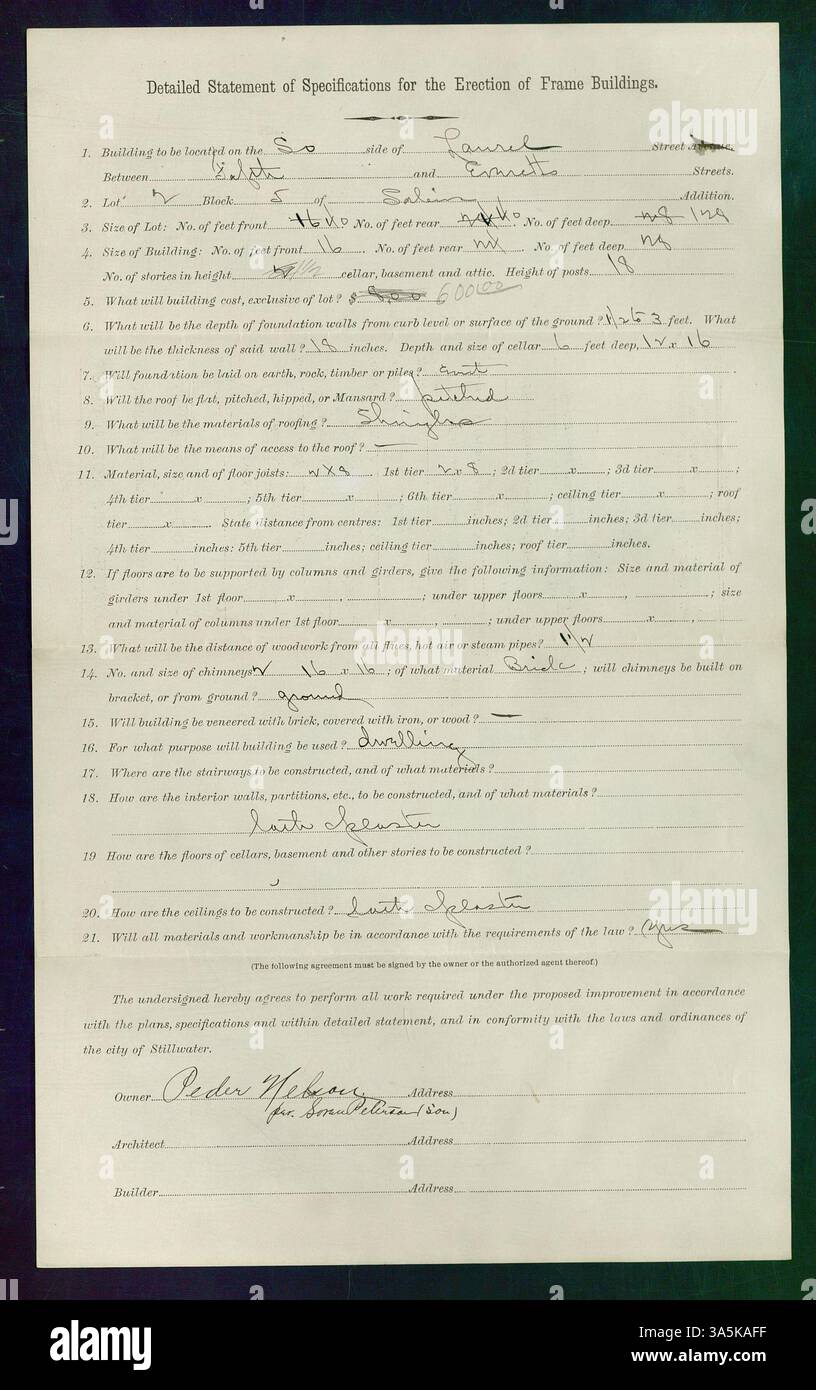 Detailed Statement of Specifications for the Erection of Frame Buildings.
1. Building to be located on the So side of Laurel Street Avenue.
Between and Everetts Streets.
2. Lot 2 Block 5 of Salem Addition.
3. Size of Lot: No. of feet front 16 40 No. of feet rear 40 No. of feet deep 28 129
4. Size of Building: No. of feet front 16 No. of feet rear No. of feet deep 28
No. of stories in height 1 1/2 cellar, basement and attic. Height of posts 18
5. What will building cost, exclusive of lot? $ 800 600.00
6. What will be the depth of foundation walls from curb level or surface of the ground? 1 1/2 to 3 feet. What
will be the thickness of said wall? 18 inches. Depth and size of cellar 6 feet deep, 12 x 16
7. Will foundation be laid on earth, rock, timber or piles?
8. Will the roof be flat, pitched, hipped, or Mansard? pitched
9. What will be the materials of roofing? Shingles
10. What will be the means of access to the roof? —
11. Material, size and of floor joists: 2x8 1st tier 2 x 8; 2d tier x ; 3d tier x ;
4th tier x ; 5th tier x ; 6th tier x ; ceiling tier x ; roof
tier x . State distance from centres: 1st tier inches; 2d tier inches; 3d tier inches;
4th tier inches: 5th tier inches; ceiling tier inches; roof tier inches.
12. If floors are to be supported by columns and girders, give the following information: Size and material of
girders under 1st floor x , ; under upper floors x , ; size
and material of columns under 1st floor x , ; under upper floors x ,
13. What will be the distance of woodwork from all flues, hot air or steam pipes? 1 1/2
14. No. and size of chimneys 2 16 x 16; of what material Brick; will chimneys be built on
bracket, or from ground? ground
15. Will building be veneered with brick, covered with iron, or wood? —
16. For what purpose will building be used? dwelling
17. Where are the stairways to be constructed, and of what materials?
18. How are the interior walls, partitions, etc., to be constructed, and of what materials?
Lath & plaster
19 How are the floors of cellars, basement and other stories to be constructed?
20. How are the ceilings to be constructed? Lath & plaster
21. Will all materials and workmanship be in accordance with the requirements of the law? Yes
(The following agreement must be signed by the owner or the authorized agent thereof.)
The undersigned hereby agrees to perform all work required under the proposed improvement in accordance
with the plans, specifications and within detailed statement, and in conformity with the laws and ordinances of
the city of Stillwater.
Owner Peder Nelson Address
per. Soren Peterson (Son)
Architect Address
Builder Address
alamy
Image ID: 3A5KAFF
www.alamy.com